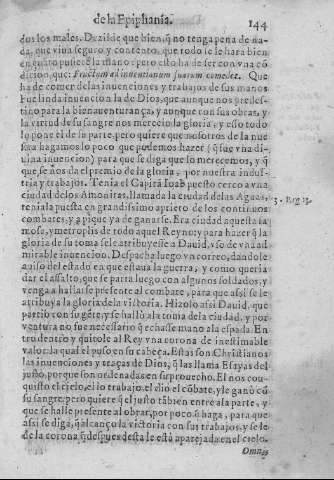 de la Epiphania.
144
dos los males. Dezilde que bien, q̃ no tenga pena de na-
da, que viua seguro, y contento, que todo le hara bien
en quãto pusiere la mano: pero esto ha de ser con vna cõ
dicion, que: Fructum adinuentionum suarum comedet. Que
ha de comer de las inuenciones y trabajos de sus manos
Fue linda inuencion la de Dios, que aunque nos predes-
tino para la bienauenturança, y aunque con sus obras, y
la virtud de su sangre nos merecio la gloria, y eso todo
lo pone el de su parte, pero quiere que nosotros de la nue
stra hagamos lo poco que podemos hazer (q̃ fue vna di-
uina inuencion) para que se diga que lo merecemos, y q̃
que se ños da el premio de la gloria, por nuestra indus-
tria y trabajos. Tenia el Capitã Ioab puesto cerco a vna
ciudad de los Amonitas, llamada la ciudad de las Aguas,
3. Reg 13.
tenia la puesta en grandissimo aprieto de los continuos
combates, y a pique ya de ganarse. Era ciudad aquesta fa
mosa, y metropolis de todo aquel Reyno: y para hazer q̃ la
gloria de su toma se le atribuyesse a Dauid, vso de vna ad
mirable inuencion. Despacha luego vn correo, dandole
auiso del estado en que estaua la guerra, y como queria
dar el assalto, que se parta luego con algunos soldados, y
venga a hallarse presente al combate, para que assi se le
atribuya la gloria de la victoria. Hizolo assi Dauid, que
partio con su gẽte, y se hallò a la toma de la ciudad, y por
ventura no fue necessario q̃ echasse mano a la espada. En
tro dentro y quitole al Rey vna corona de inestimable
valor, la qual el puso en su cabeça. Estas son Christianos
las inuenciones y traças de Dios, q̃ las llama Esayas del
justo, por que son ordenadas en su prouecho. El nos con-
quisto el cielo, el lo trabajo, el dio el cõbate, y le ganò cõ
su sangre, pero quiere q̃ el justo tãbien entre a la parte, y
que se halle presente al obrar, por poco q̃ haga, para que
assi se diga, q̃ alcanço la victoria con sus trabajos, y se le
de la corona q̃ despues desta le està aparejada en el cielo.
Omnes